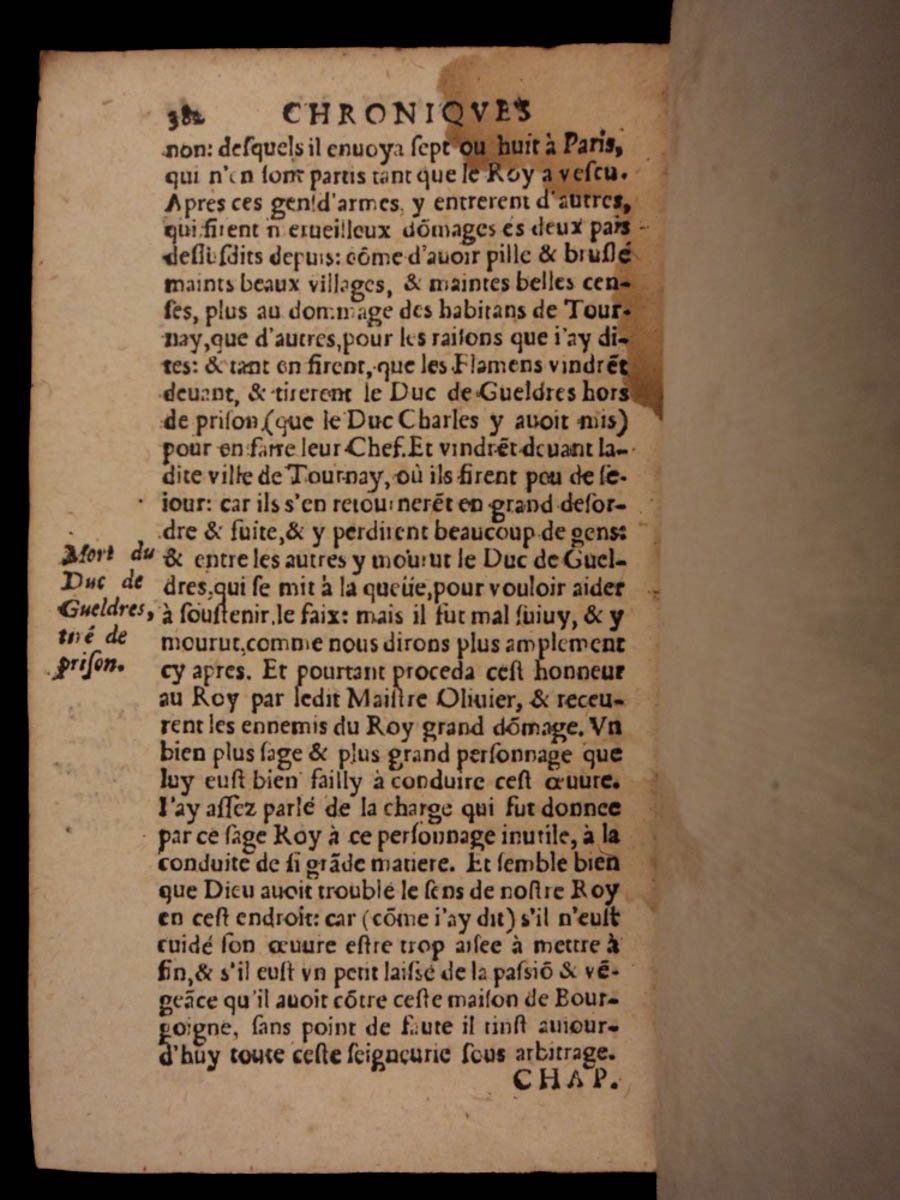 382 CHRONIQVES
non: deſquels il enuoya ſept ou huit à Paris,
qui n'en ſont partis tant que le Roy a veſcu.
Apres ces genſd'armes, y entrerent d'autres,
qui firent merueilleux dõmages és deux pais
deſſuſdits depuis: cõme d'auoir pillé & bruſlé
maints beaux villages, & maintes belles cen-
ſes, plus au dommage des habitans de Tour-
nay, que d'autres, pour les raiſons que i'ay di-
tes: & tant en firent, que les Flamens vindrẽt
deuant, & tirerent le Duc de Gueldres hors
de priſon (que le Duc Charles y auoit mis)
pour en faire leur Chef. Et vindrẽt deuant la-
dite ville de Tournay, où ils firent peu de ſe-
iour: car ils s'en retournerẽt en grand deſor-
dre & fuite, & y perdirent beaucoup de gens:
& entre les autres y mourut le Duc de Guel-
dres, qui ſe mit à la queüe, pour vouloir aider
à ſouſtenir le faix: mais il fut mal ſuiuy, & y
mourut, comme nous dirons plus amplement
cy apres. Et pourtant proceda ceſt honneur
au Roy par ledit Maiſtre Oliuier, & receu-
rent les ennemis du Roy grand dõmage. Vn
bien plus ſage & plus grand perſonnage que
luy euſt bien failly à conduire ceſt œuure.
I'ay aſſez parlé de la charge qui fut donnee
par ce ſage Roy à ce perſonnage inutile, à la
conduite de ſi grãde matiere. Et ſemble bien
que Dieu auoit troublé le ſens de noſtre Roy
en ceſt endroit: car (cõme i'ay dit) s'il n'euſt
cuidé ſon œuure eſtre trop aiſee à mettre à
fin, & s'il euſt vn petit laiſſé de la paſſiõ & vẽ-
geãce qu'il auoit cõtre ceſte maiſon de Bour-
goigne, ſans point de faute il tinſt auiour-
d'huy toute ceſte ſeigneurie ſous arbitrage.
CHAP.
Mort du
Duc de
Gueldres,
tiré de
priſon.